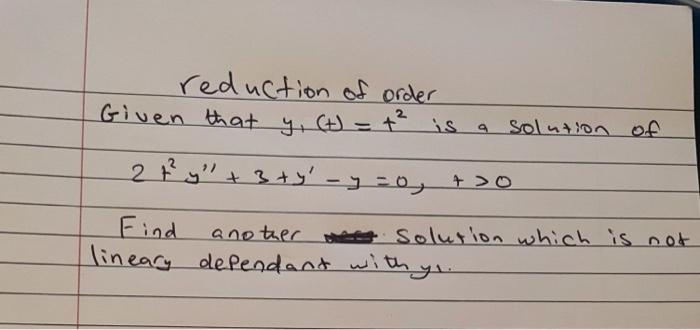 reduction of order
Given that y₁(t) = t² is a solution of
2t²y'' + 3ty' - y = 0, t > 0
Find another solution which is not
lineary dependant with y₁.